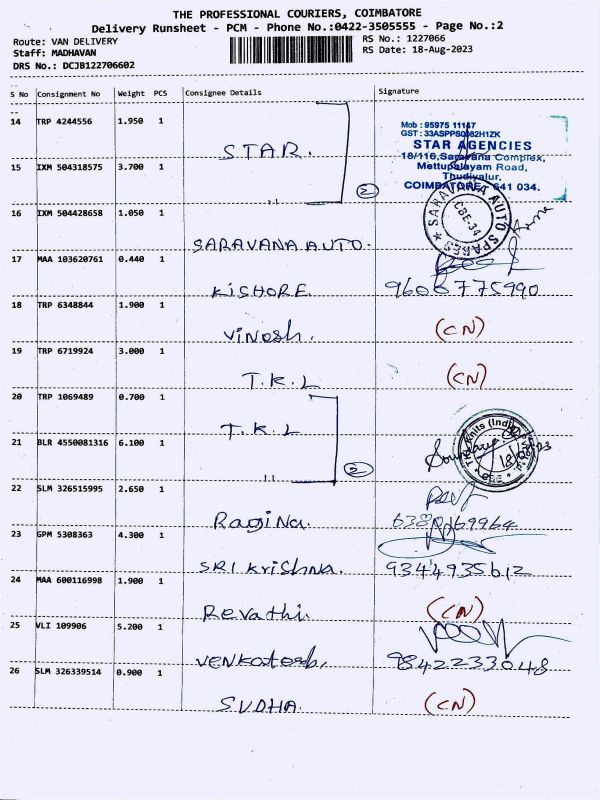 THE PROFESSIONAL COURIERS, COIMBATORE
Delivery Runsheet - PCM - Phone No.:0422-3505555 - Page No.:2
Route: VAN DELIVERY
RS No.: 1227066
Staff: MADHAVAN
RS Date: 18-Aug-2023
DRS No.: DCJB122706602
S No Consignment No Weight PCS Consignee Details Signature
14 TRP 4244556 1.950 1
STAR.
Mob : 95975 11147
STAR AGENCIES
18/116, Saravana Complex,
Mettupalayam Road,
Thudiyalur,
COIMBATORE - 641 034.
15 IXM 504318575 3.700 1
2
16 IXM 504428658 1.050 1
SARAVANA AUTO.
SARAVANA AUTO SPARES
CBE-34
17 MAA 103620761 0.440 1
KISHORE
9608775990
18 TRP 6348844 1.900 1
Vinosh.
(CN)
19 TRP 6719924 3.000 1
T.K.L
(CN)
20 TRP 1069489 0.700 1
T.K.L
21 BLR 4550081316 6.100 1
2
22 SLM 326515995 2.650 1
Ragina.
23 GPM 5308363 4.300 1
SRI Krishna.
9344935612
24 MAA 600116998 1.900 1
Revathi.
(CN)
25 VLI 109906 5.200 1
Venkatesh.
9842233048
26 SLM 326339514 0.900 1
SUDHA.
(CN)